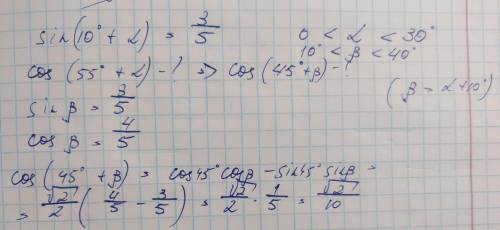 sin(10° + α) = 3/5     0 < α < 30°
10° < β < 40°
cos(55° + α) - ? => cos(45° + β) - ?
(β = α + 10°)
sin β = 3/5
cos β = 4/5
cos(45° + β) = cos45° cosβ - sin45° sinβ =
= √2/2 (4/5 - 3/5) = √2/2 · 1/5 = √2/10